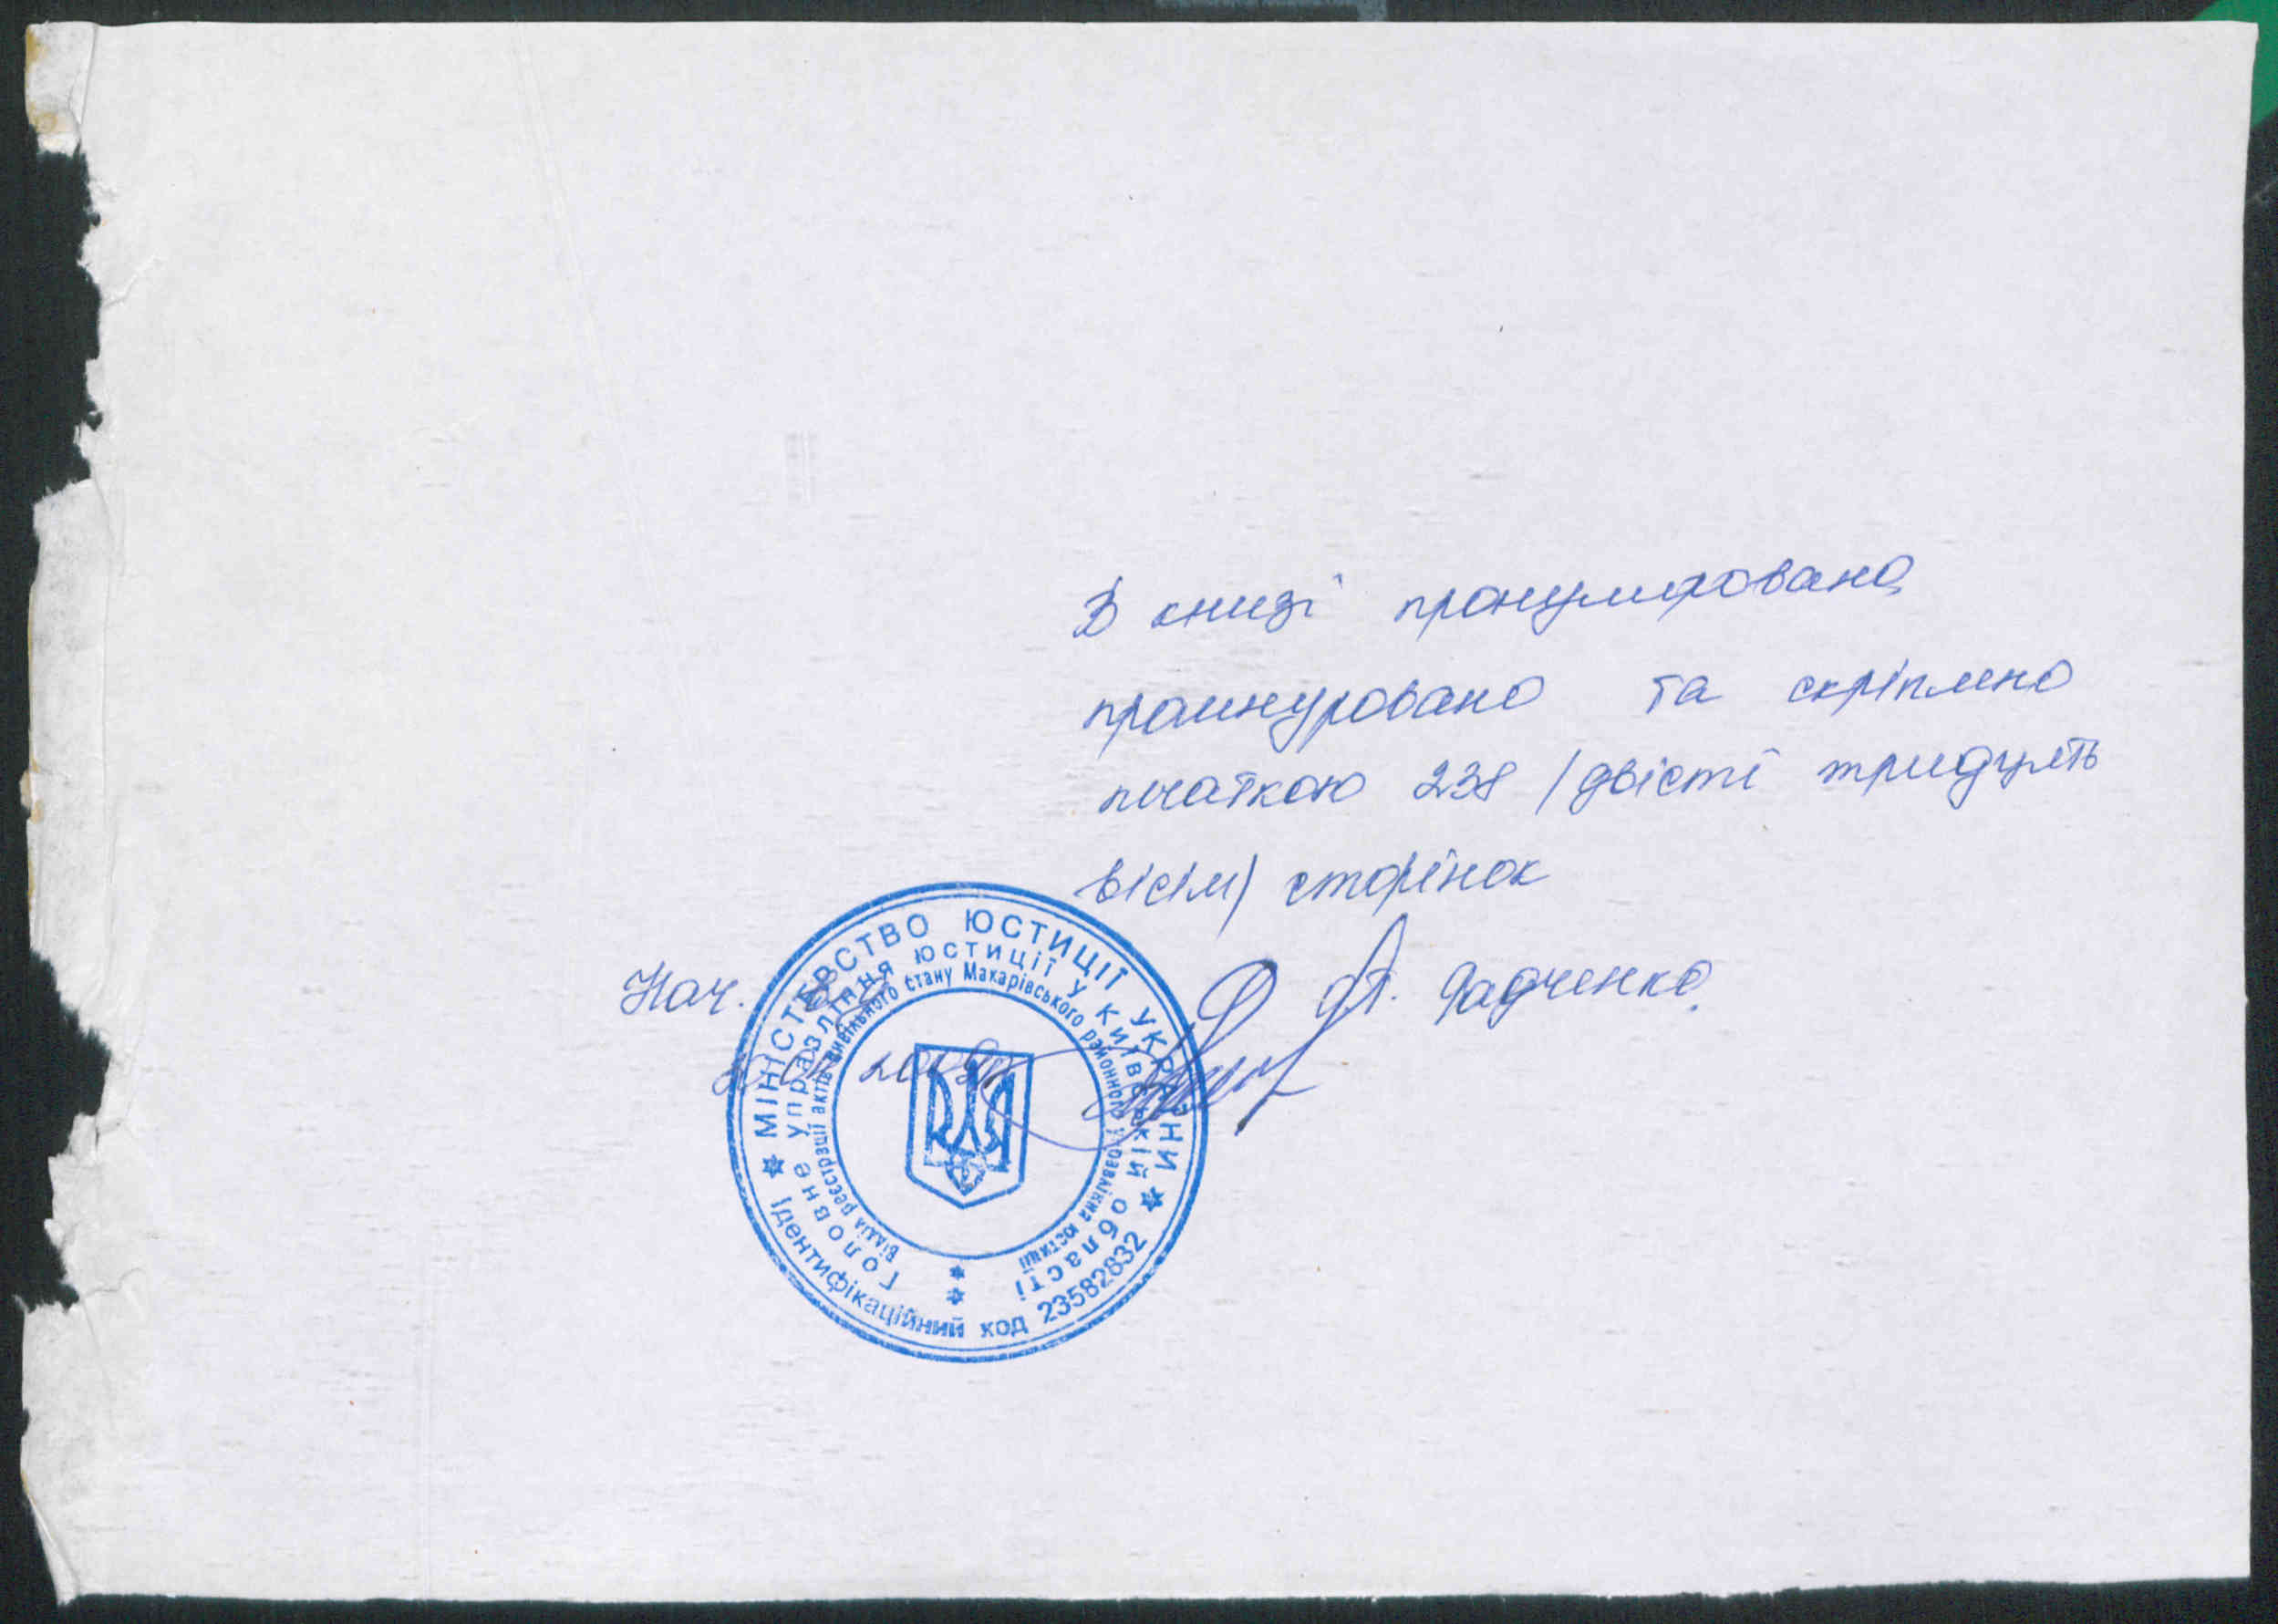 В книзі пронумеровано,
прошнуровано та скріплено
печаткою 238 /двісті тридцять
вісім/ сторінок
Нач. Л. Радченко.
2009
МІНІСТЕРСТВО ЮСТИЦІЇ УКРАЇНИ
Ідентифікаційний код 23582832
Головне управління юстиції у Київській області
Відділ реєстрації актів цивільного стану Макарівського районного управління юстиції